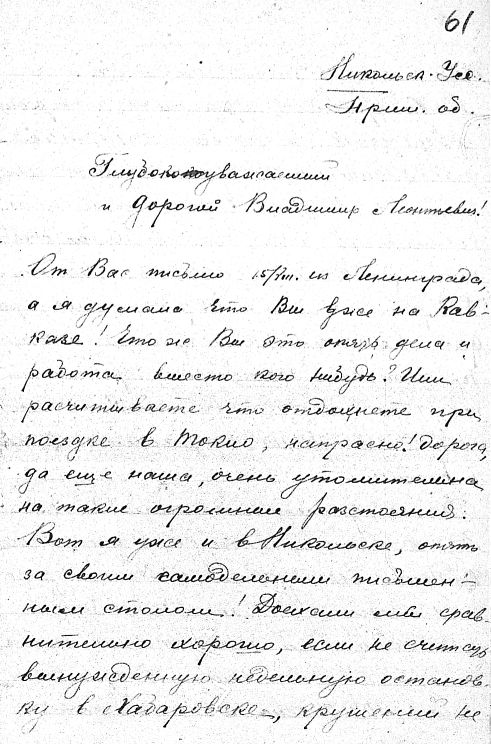 61
Никольск. Усс.
Прим. об.
Глубокоуважаемый
и дорогой Владимир Леонтьевич!
От Вас письмо 15/VIII. из Ленинграда,
а я думала что Вы уже на Кав-
казе! Что же Вы это опять дела и
работа вместо кого нибудь? Или
расчитываете что отдохнете при
поездке в Токио, напрасно! Дорога,
да еще наша, очень утомительна
на такие огромные разстояния.
Вот я уже и в Никольске, опять
за своим самодельным письмен-
ным столом! Доехали мы срав-
нительно хорошо, если не считать
вынужденную недельную останов-
ку в Хабаровске, крушений не